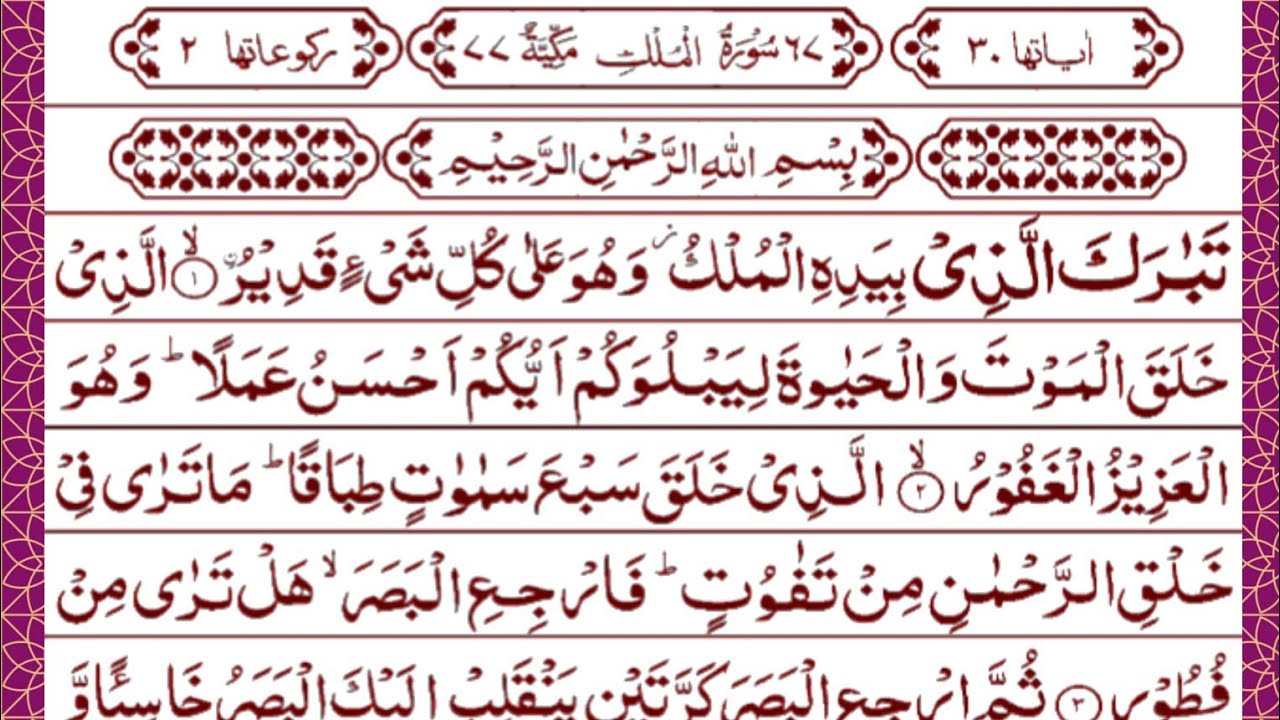 اٰیاتها ٣٠ ٦٧ سُوْرَةُ الْمُلْكِ مَكِّيَّةٌ ٧٧ رکوعاتها ٢
بِسْمِ اللّٰهِ الرَّحْمٰنِ الرَّحِيْمِ
تَبٰرَكَ الَّذِیْ بِيَدِهِ الْمُلْكُ ز وَهُوَ عَلٰى كُلِّ شَیْءٍ قَدِيْرُ ۨ ۙ ١ الَّذِیْ
خَلَقَ الْمَوْتَ وَالْحَيٰوةَ لِيَبْلُوَكُمْ اَيُّكُمْ اَحْسَنُ عَمَلًا ؕ وَهُوَ
الْعَزِيْزُ الْغَفُوْرُ ۙ ٢ الَّذِیْ خَلَقَ سَبْعَ سَمٰوٰتٍ طِبَاقًا ؕ مَا تَرٰى فِیْ
خَلْقِ الرَّحْمٰنِ مِنْ تَفٰوُتٍ ؕ فَارْجِعِ الْبَصَرَ ۙ هَلْ تَرٰى مِنْ
فُطُوْرٍ ٣ ثُمَّ ارْجِعِ الْبَصَرَ كَرَّتَيْنِ يَنْقَلِبْ اِلَيْكَ الْبَصَرُ خَاسِئًا وَّ